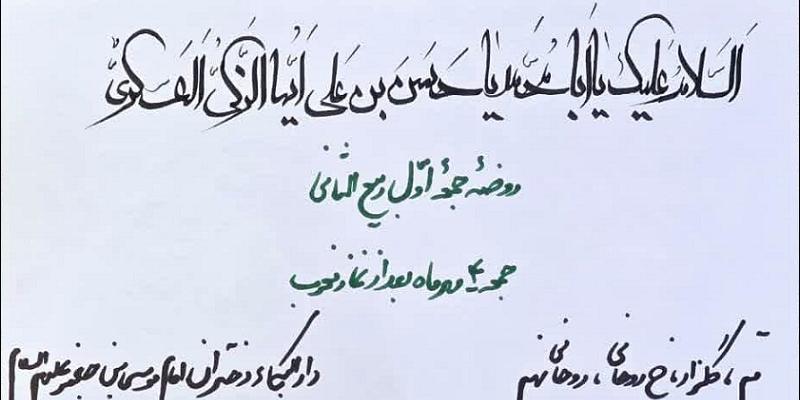 السَّلامُ عَلَیکَ یا اَبا مُحَمَّد یا حَسَن بن عَلی اَیُّها الزَّکیُّ العَسکَریُّ
روضهٔ جمعهٔ اوّل ربیع الثانی
جمعه ۴ مهرماه بعد از نماز مغرب
قم ، گلزار، خ روحانی ، روحانی نهم
دارالبکاء دختران امام موسی بن جعفر علیهم السلام